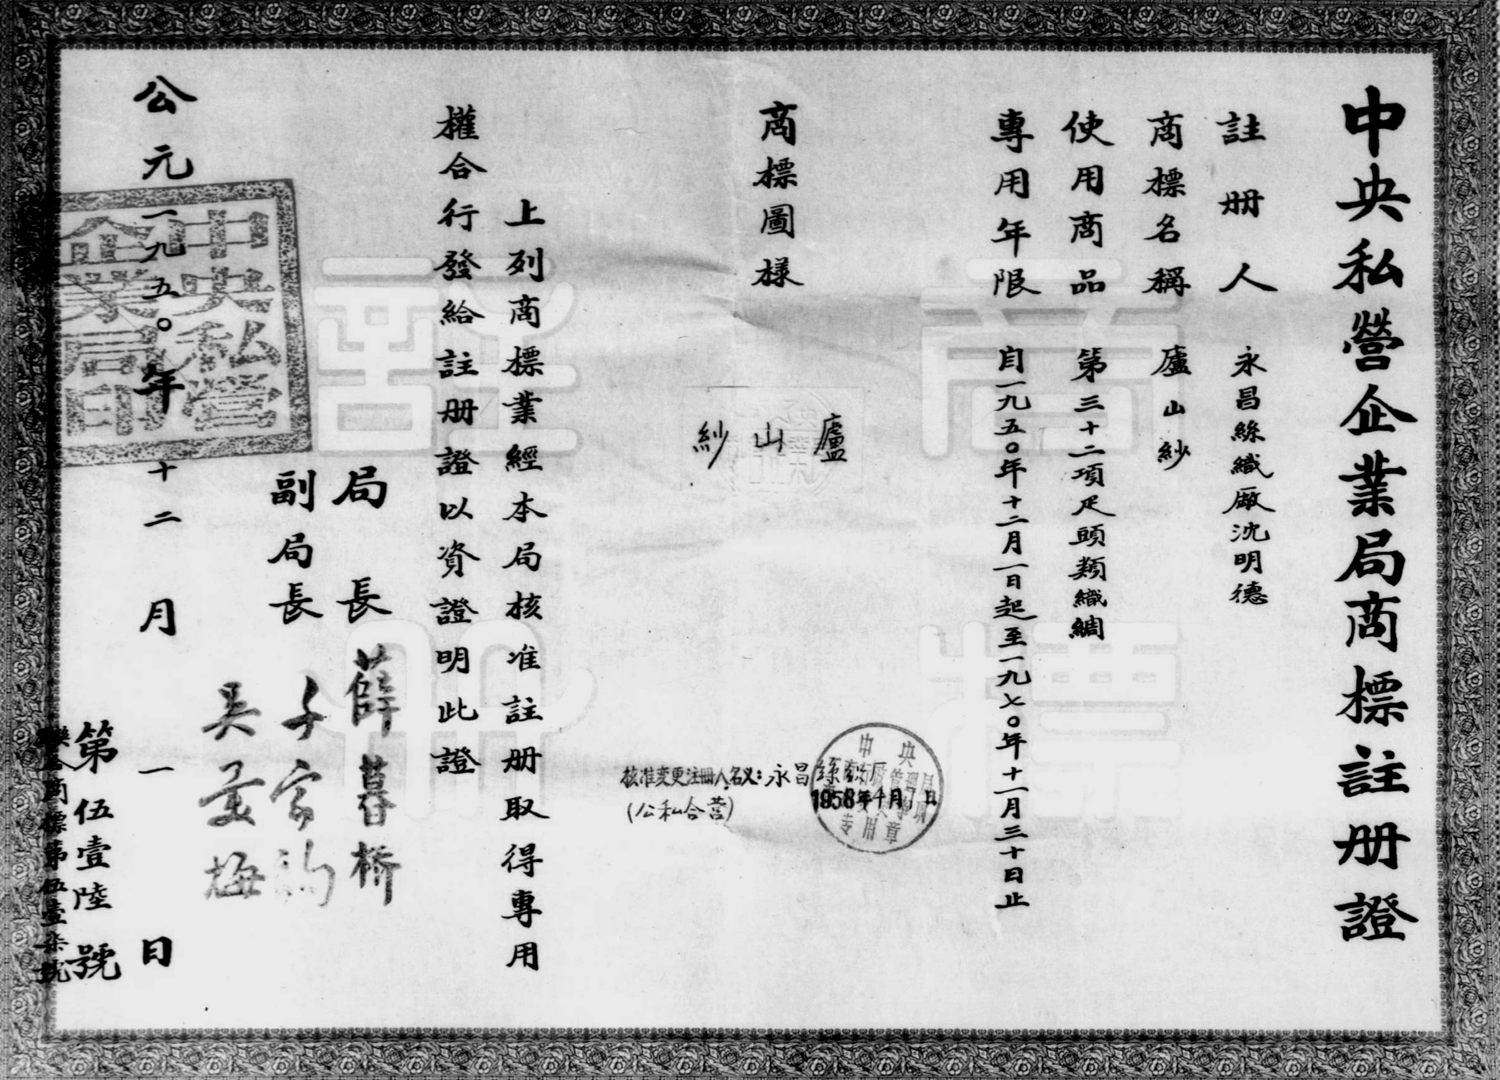 中央私營企業局商標註冊證
註冊人 永昌絲織廠沈明德
商標名稱 廬山紗
使用商品 第三十二項疋頭類織綢
專用年限 自一九五〇年十二月一日起至一九七〇年十一月三十日止
商標圖樣
廬山紗
核准变更注册人名义：永昌絲織厂
(公私合营)
1956年 月7日
上列商標業經本局核准註册取得專用
權合行發給註册證以資證明此證
局長 薛暮桥
副局長 千家駒
吴羹梅
公元一九五〇年十二月一日
中央私營企業局印
第伍壹陸號
聯合商標第伍壹柒號
商標註冊